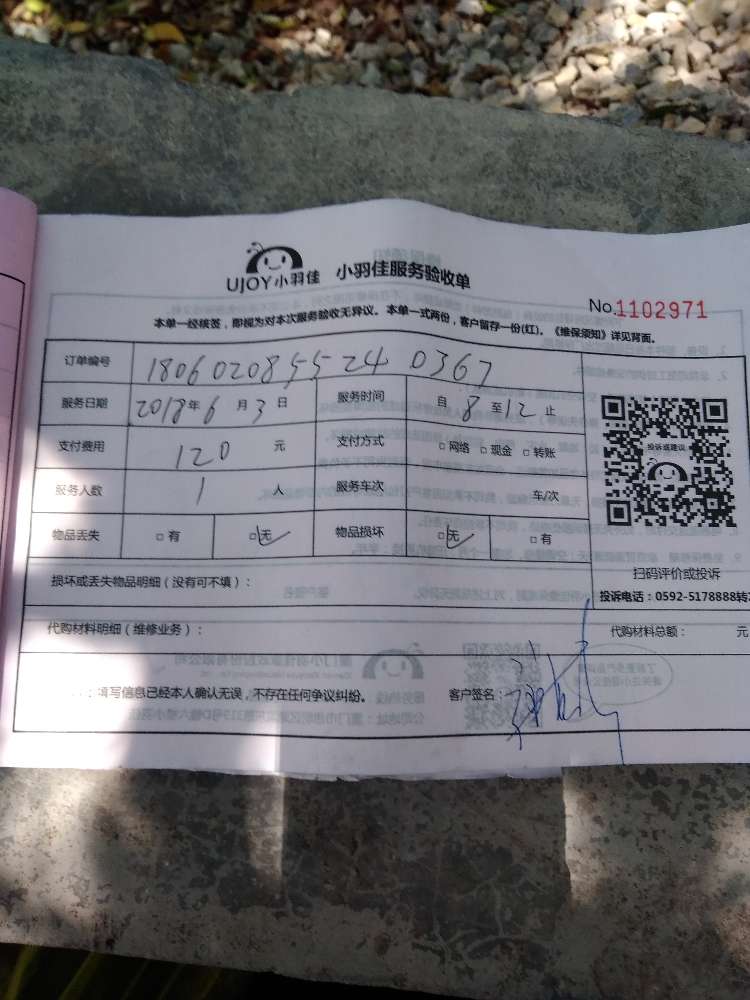 UJOY小羽佳 小羽佳服务验收单
No.1102971
本单一经核签，即视为对本次服务验收无异议。本单一式两份，客户留存一份(红)。《维保须知》详见背面。
订单编号 180602085524 0367
服务日期 2018年6月3日 服务时间 自8至12止
支付费用 120 元 支付方式 □网络 □现金 □转账
服务人数 1 人 服务车次 车/次
物品丢失 □有 □无 物品损坏 □无 □有
投诉或建议
扫码评价或投诉
投诉电话：0592-5178888转
损坏或丢失物品明细（没有可不填）：
代购材料明细（维修业务）： 代购材料总额： 元
填写信息已经本人确认无误，不存在任何争议纠纷。 客户签名：